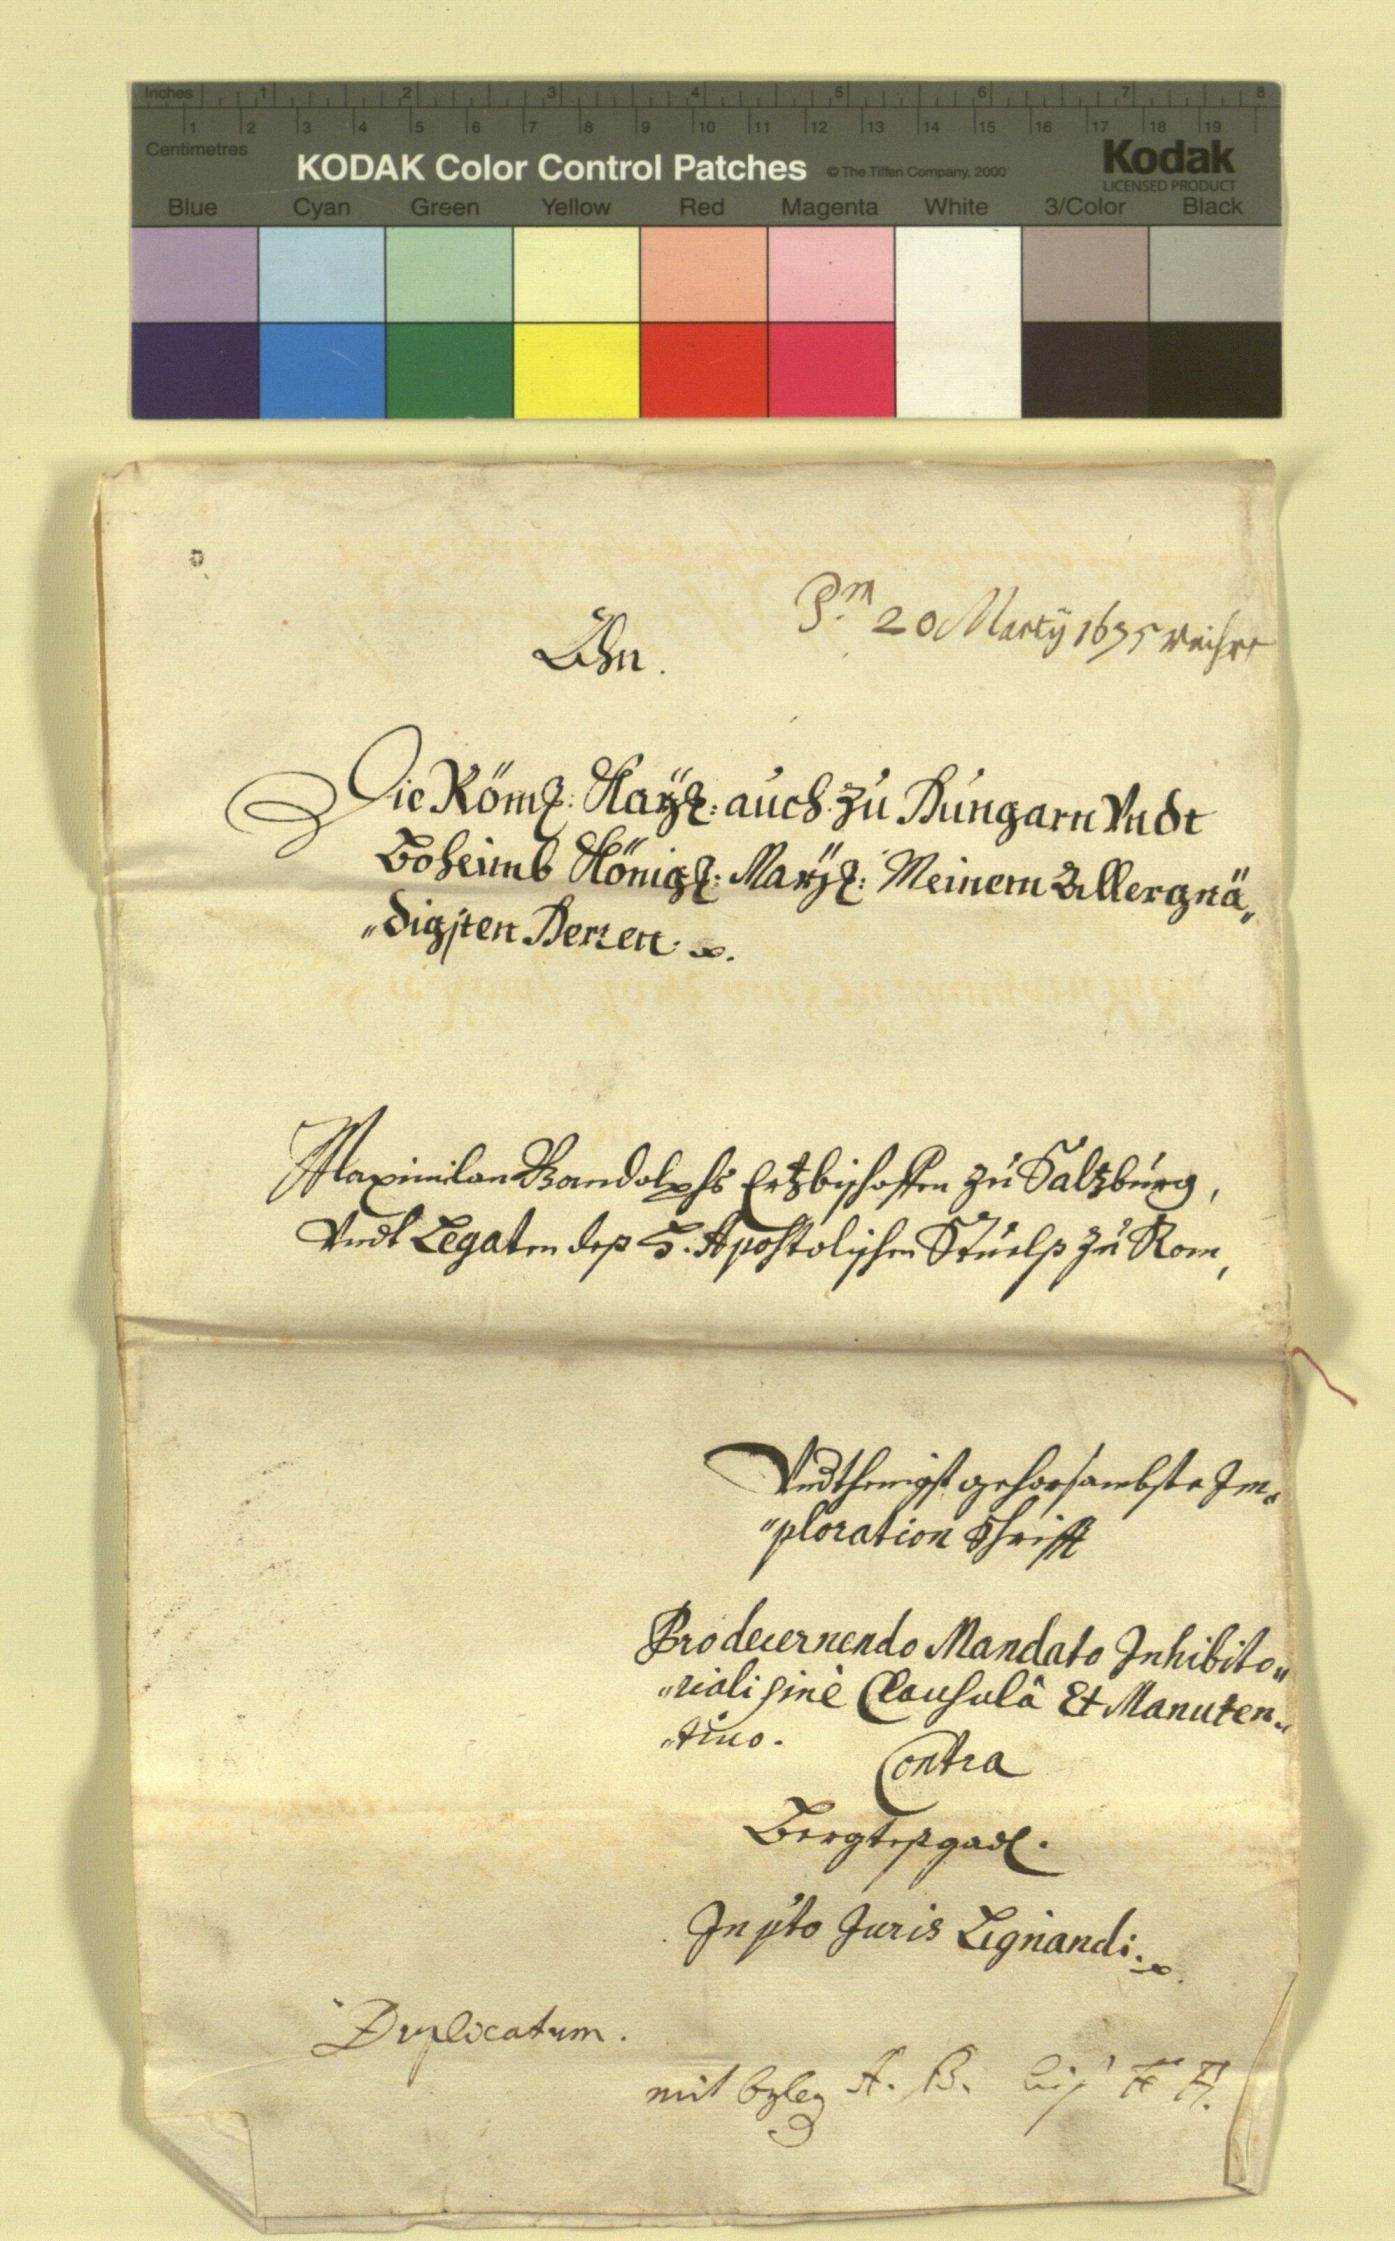 Inches 1 2 3 4 5 6 7 8
1 2 3 4 5 6 7 8 9 10 11 12 13 14 15 16 17 18 19
Centimetres
KODAK Color Control Patches © The Tiffen Company, 2000 Kodak
LICENSED PRODUCT
Blue Cyan Green Yellow Red Magenta White 3/Color Black
Pm 20 Marty 1675
Ahn.
Die Röml: Kayl: auch zu Hungarn Vndt
Boheimb Königl: Mayl: Meinem Allergnä„
„digsten Herren.
Maximilan Gandolphs Ertzbischoffen zu Saltzburg,
Vndt Legaten deß H. Apostolischen Stuelß zu Rom,
Vndthenigst gehorsambste Im„
„ploration Schrifft
Pro decernendo Mandato Inhibito„
„riali sinè Clausulâ Et Manuten„
„tiuo.
Contra
Bergteßgadl.
In pto Juris Lignandi.
Duplicatum.
mit bylag A. B. biß FF.